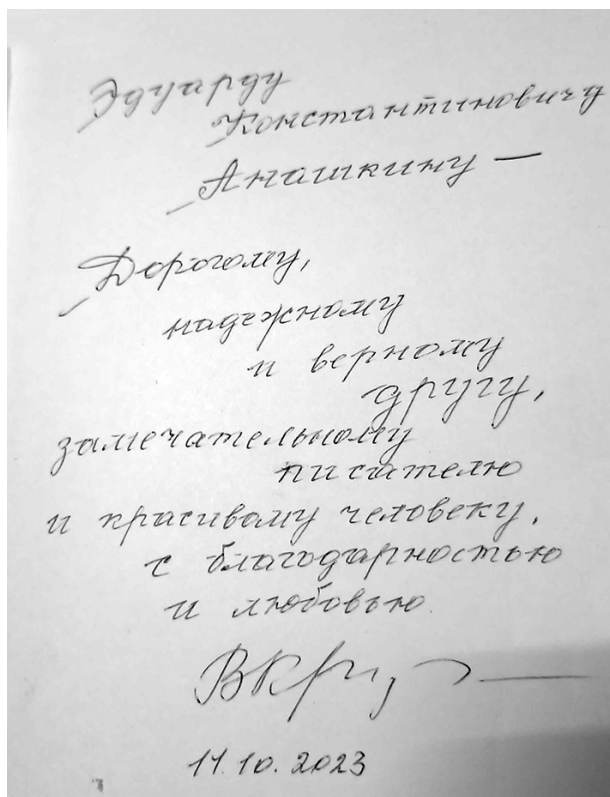 Эдуарду
Константиновичу
Анашкину —
Дорогому,
надежному
и верному
другу,
замечательному
писателю
и красивому человеку,
с благодарностью
и любовью.
11.10.2023